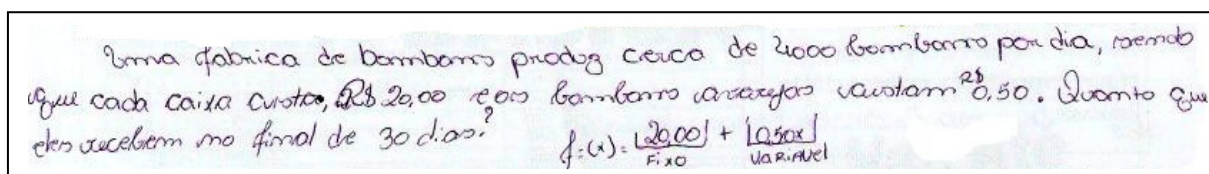 Uma fabrica de bombons produz cerca de 4000 bombons por dia, sendo
que cada caixa custa, R$ 20,00 e os bombons avarejos custam R$ 0,50. Quanto que
eles recebem no final de 30 dias?
f:(x) = 20,00 + 0,50x
Fixo VARIAVEl